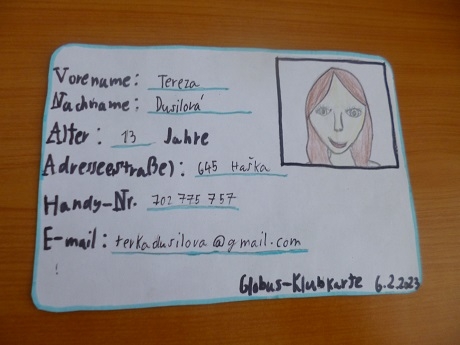 Vorename: Tereza
Nachname: Dusilová
Alter: 13 Jahre
Adresse(straße): 645 Haška
Handy-Nr. 702 775 757
E-mail: terkadusilova@gmail.com
!
Globus-Klubkarte 6.2.2023